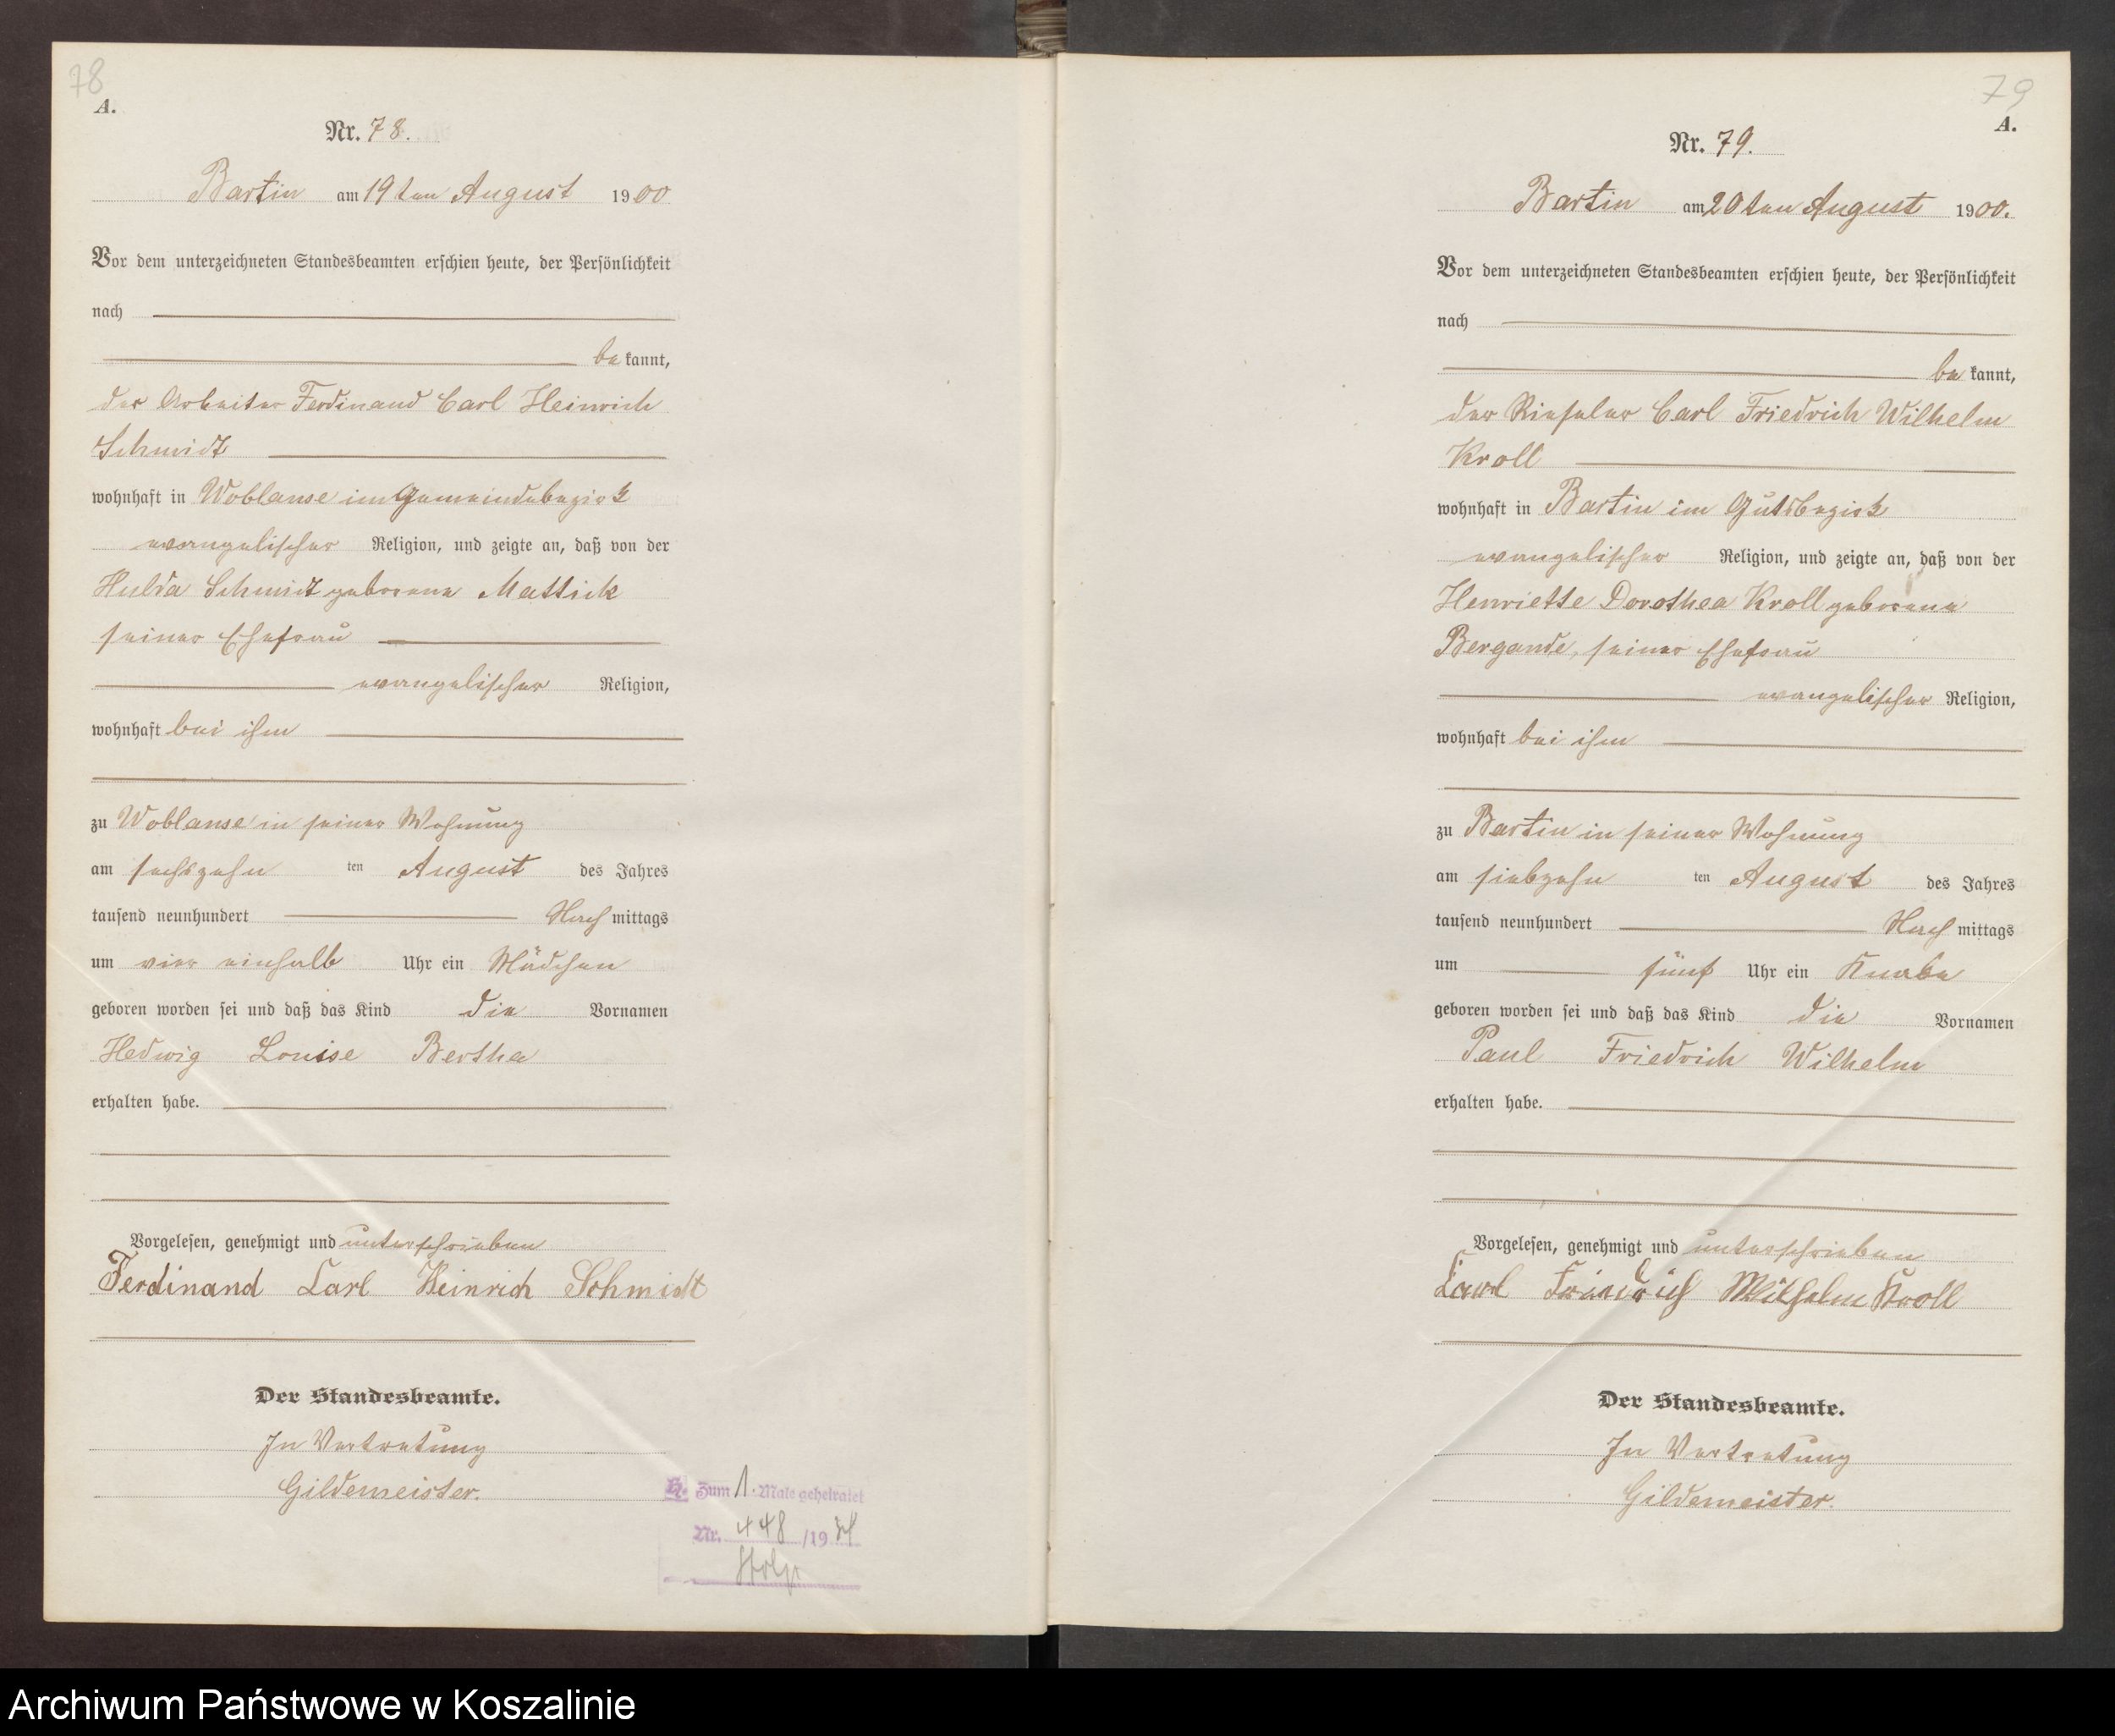 78
A.
Nr. 78.
Bartin am 19ten August 1900
Vor dem unterzeichneten Standesbeamten erschien heute, der Persönlichkeit
nach
be kannt,
der Arbeiter Ferdinand Carl Heinrich
Schmidt
wohnhaft in Woblanse im Gemeindebezirk
evangelischer Religion, und zeigte an, daß von der
Hulda Schmidt geborene Mattick
seiner Ehefrau
evangelischer Religion,
wohnhaft bei ihm
zu Woblanse in seiner Wohnung
am sechszehn ten August des Jahres
tausend neunhundert Nach mittags
um vier einhalb Uhr ein Mädchen
geboren worden sei und daß das Kind die Vornamen
Hedwig Louise Bertha
erhalten habe.
Vorgelesen, genehmigt und unterschrieben
Ferdinand Carl Heinrich Schmidt
Der Standesbeamte.
In Vertretung
Gildemeister.
H. Zum 1. Male geheiratet
Nr. 448 /19
Stolp
79
A.
Nr. 79.
Bartin am 20ten August 1900.
Vor dem unterzeichneten Standesbeamten erschien heute, der Persönlichkeit
nach
be kannt,
der Rieseler Carl Friedrich Wilhelm
Kroll
wohnhaft in Bartin im Gutsbezirk
evangelischer Religion, und zeigte an, daß von der
Henriette Dorothea Kroll geborene
Bergande, seiner Ehefrau
evangelischer Religion,
wohnhaft bei ihm
zu Bartin in seiner Wohnung
am siebzehn ten August des Jahres
tausend neunhundert Nach mittags
um fünf Uhr ein Knabe
geboren worden sei und daß das Kind die Vornamen
Paul Friedrich Wilhelm
erhalten habe.
Vorgelesen, genehmigt und unterschrieben
Carl Friedrich Wilhelm Kroll
Der Standesbeamte.
In Vertretung
Gildemeister.
Archiwum Państwowe w Koszalinie